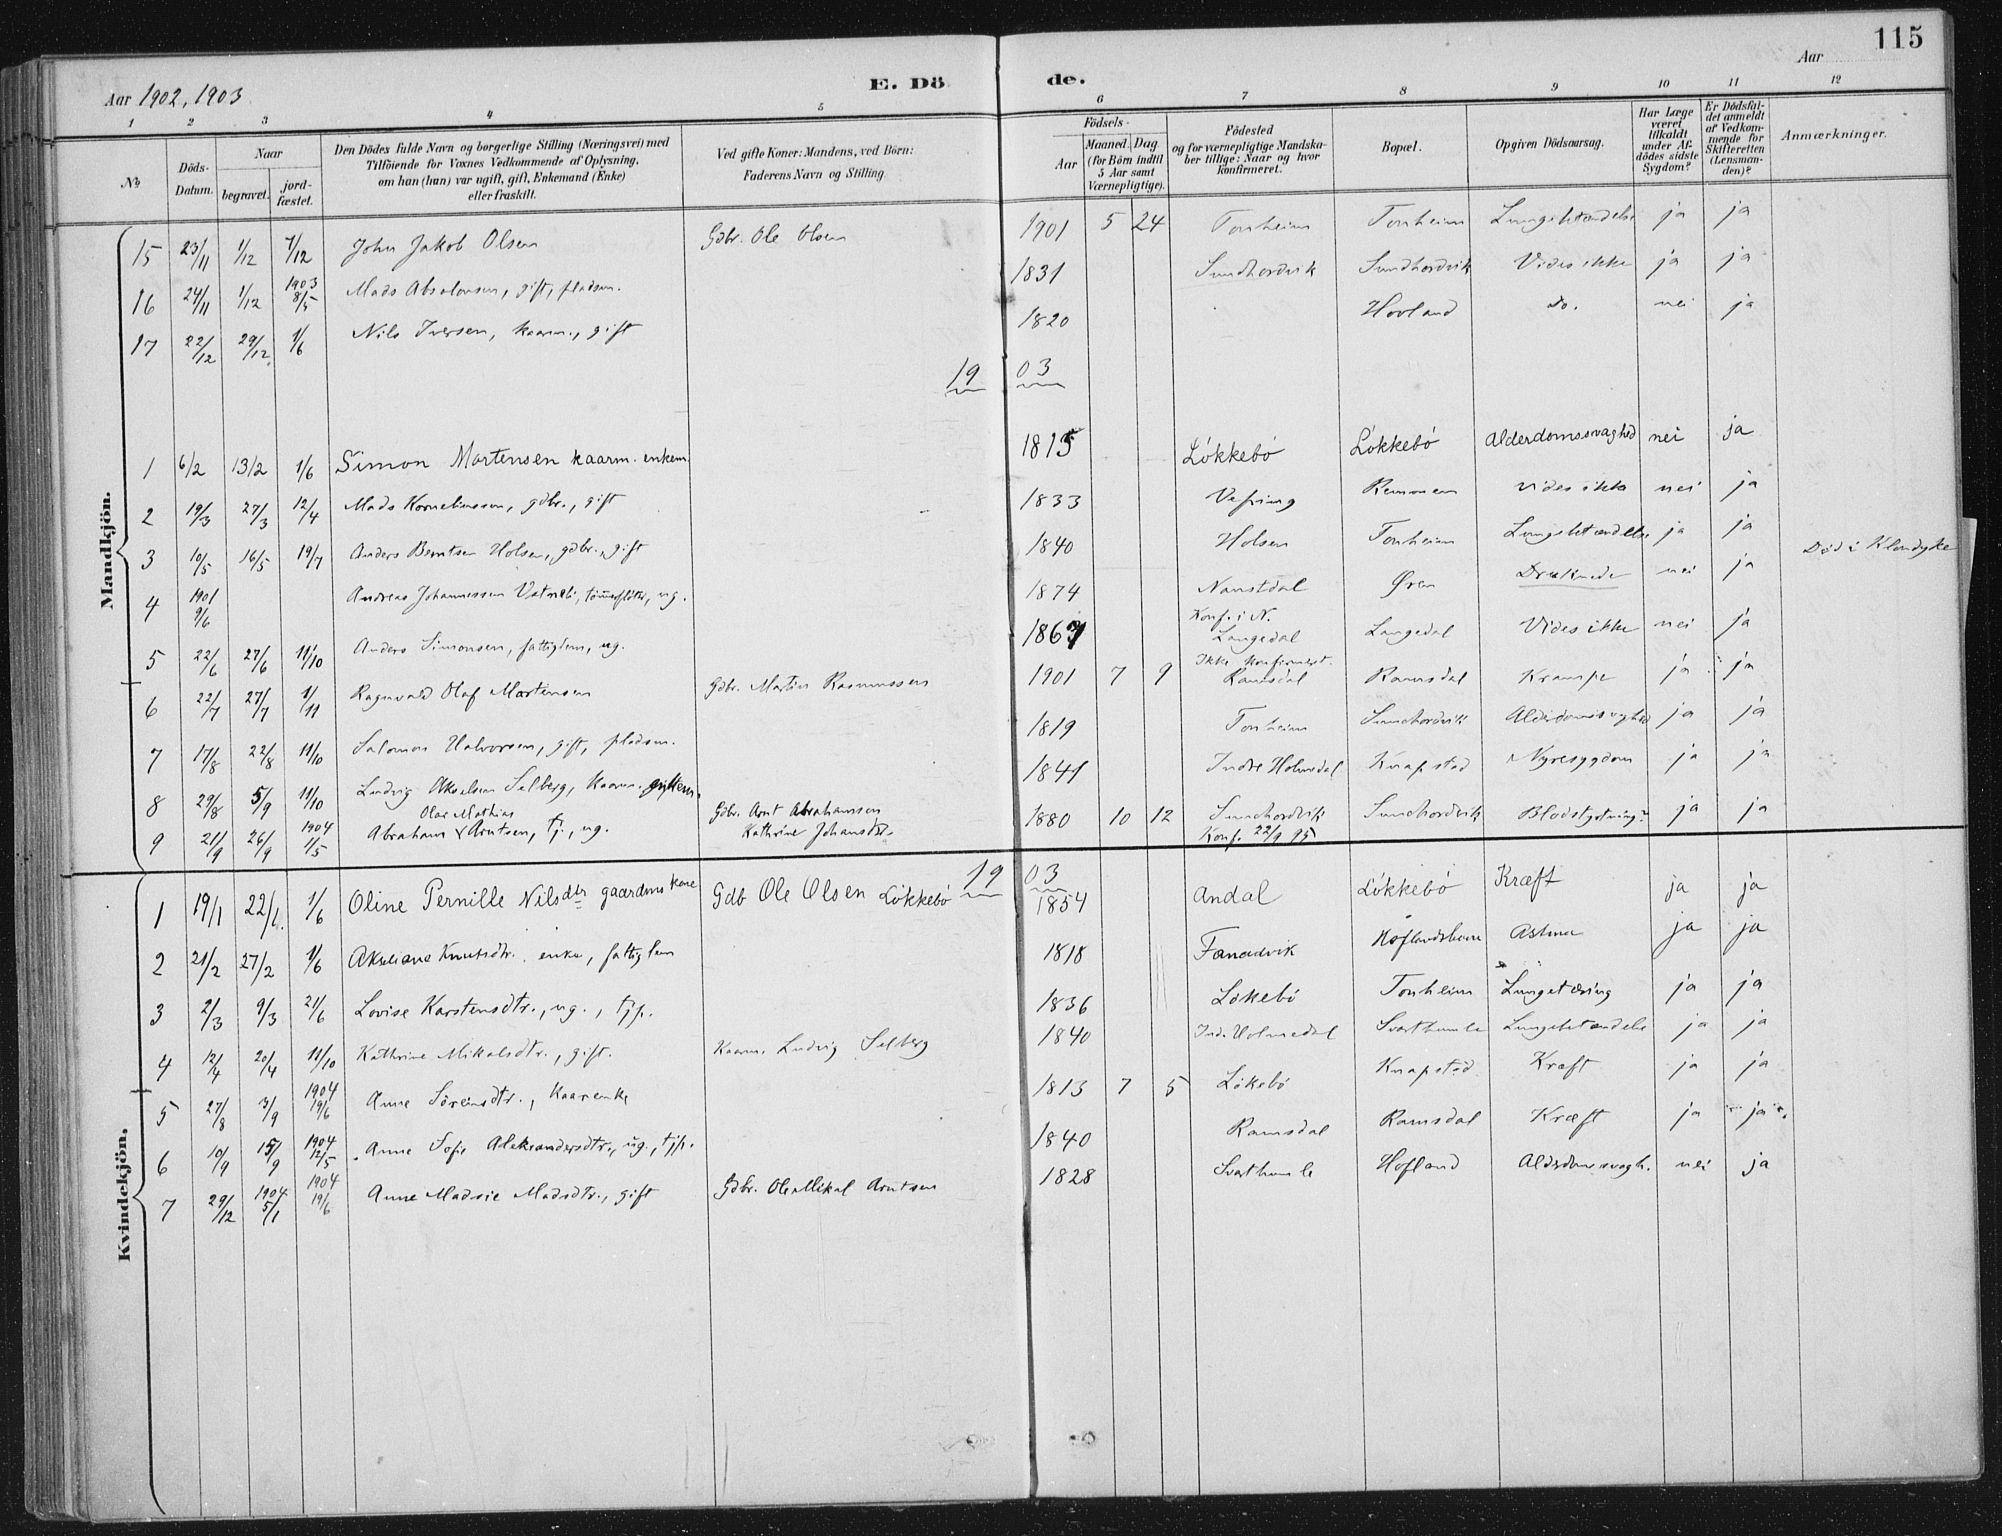 115
Aar 1902, 1903
E. Dö de.
Aar
1 2 3 4 5 6 7 8 9 10 11 12
No
Döds-Datum.
Naar
begravet.
jord-fæstet.
Den Dödes fulde Navn og borgerlige Stilling (Næringsvei) med
Tilföiende for Voxnes Vedkommende af Oplysning,
om han (hun) var ugift, gift, Enkemand (Enke)
eller fraskilt.
Ved gifte Koner: Mandens, ved Börn:
Faderens Navn og Stilling.
Födsels-
Aar
Maaned. Dag.
(for Börn indtil
5 Aar samt
Værnepligtige).
Födested
og for værnepligtige Mandska-
ber tillige: Naar og hvor
konfirmeret.
Bopæl.
Opgiven Dödsaarsag.
Har Læge
været
tilkaldt
under Af-
dödes sidste
Sygdom?
Er Dödsfal-
det anmeldt
af Vedkom-
mende for
Skifteretten
(Lensman-
den)?
Anmærkninger.
Mandkjön.
15 23/11 1/12 7/12 John Jakob Olsen Gdbr. Ole Olsen 1901 5 24 Tonheim Tonheim Lungebetændelse ja ja
16 24/11 1/12 1903 8/5 Mads Absalonsen, gift, pladsm. 1831 Sundhordvik Sundhordvik Vides ikke ja ja
17 22/12 29/12 1/6 Nils Iversen, kaarm., gift 1820 Hovland do. nei ja
19 03
1 6/2 13/2 1/6 Simon Mortensen kaarm. enkem. 1815 Lökkebö Lökkebö Alderdomssvaghed nei ja
2 19/3 27/3 12/4 Mads Korneliussen, gdbr., gift 1833 Vefring vides ikke nei ja
3 10/5 16/5 19/7 Anders Berntsen Holsen, gdbr., gift 1840 Holsen Tonheim Lungebetændelse ja ja
4 1901 9/6 Andreas Johannessen ug. 1874 Naustdal Øren Druknede nei ja Død i Klondyke
Konf. i N.
5 22/6 27/6 11/10 Anders Simonsen, fattiglem, ug. 1867 Langedal Langedal Vides ikke nei ja
Ikke konfirmert.
6 22/7 27/7 1/11 Ragnvald Olaf Martinsen Gdbr. Martin Rasmussen 1901 7 9 Ramsdal Ramsdal Krampe ja ja
7 17/8 22/8 11/10 Salomon Halvorsen, gift, pladsm. 1819 Tonheim Sundhordvik Alderdomssvaghed ja ja
8 29/8 5/9 11/10 Ludvig Akselsen Selberg, Kaarm. 1841 Indre Holmedal Knapstad Nyresygdom ja ja
Olai Mathias
9 21/9 26/9 1904 1/5 Abraham Arntsen, tj., ug. Gdbr. Arnt Abrahamsen
Kathrine Johansdtr. 1880 10 12 Sundhordvik Sundhordvik Blodstyrtning? ja ja
Konf. 22/9 95
Kvindekjön.
19 03
1 19/1 22/1 1/6 Oline Pernille Nilsdtr gaardms kone Gdb Ole Olsen Lökkebö 1854 Andal Lökkebö Kræft ja ja
2 21/2 27/2 1/6 Akseliane Knutsdtr. enke, fattiglem 1818 Fanadvik Astma ja ja
3 2/3 9/3 21/6 Lovise Karstensdtr., ug., tjp. 1836 Lökebö Tonheim Lungetæring ja ja
4 12/4 20/4 11/10 Kathrine Mikalsdtr., gift. Kaarm. Ludvig Selberg 1840 Ind. Holmedal Svarthumle Lungebetændelse ja ja
5 27/8 3/9 1904 19/6 Anne Sörensdtr., Kaarenke 1813 7 5 Lökebö Knapstad Kræft ja ja
6 10/9 15/9 1904 12/5 Anne Sofie Aleksandersdtr., ug., tjp. 1840 Ramsdal Ramsdal Kræft ja ja
7 29/12 1904 5/1 1904 19/6 Anne Madsie Madsdtr., gift Gdbr. Ole Mikal Arntsen 1828 Svarthumle Hofland Alderdomssvagh. nei ja